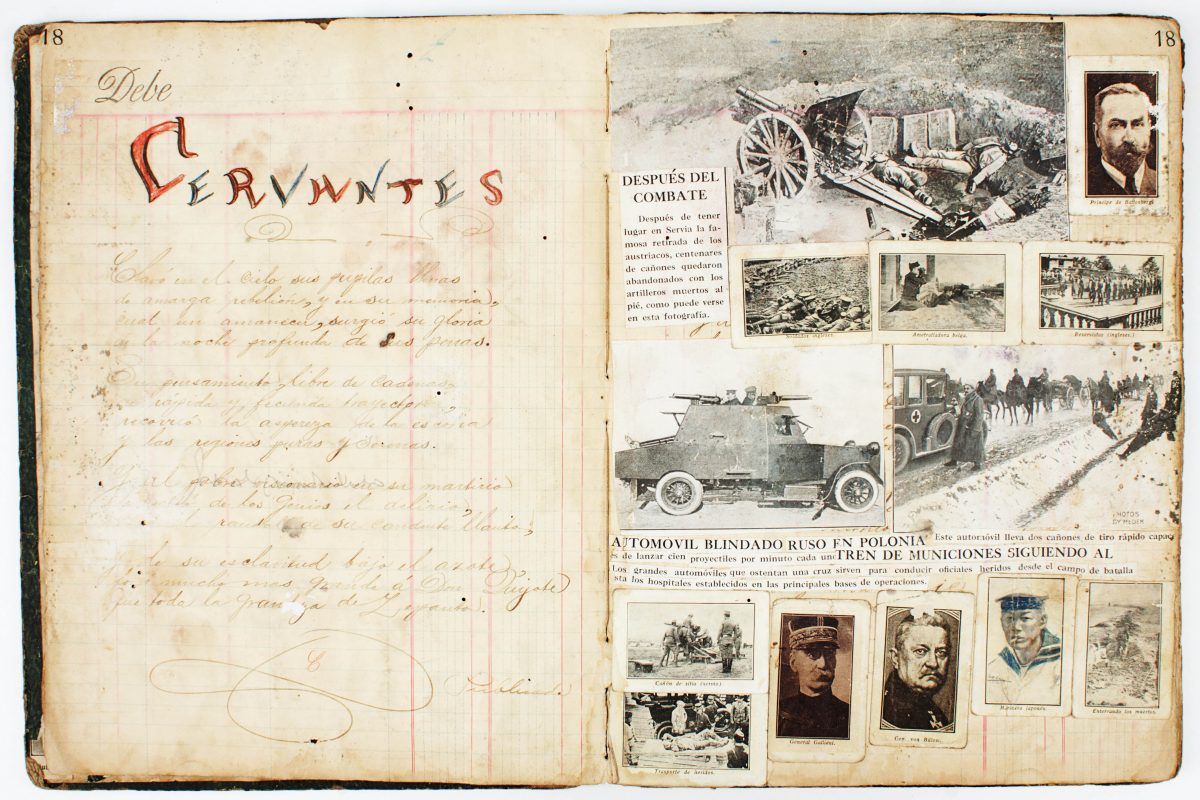 18
Debe
CERVANTES
Clavó en el cielo sus pupilas llenas
de amarga rebelión, y en su memoria,
cual un amanecer, surgió su gloria
en la noche profunda de sus penas.
Su pensamiento, libre de cadenas,
rápida y fecunda trayectoria,
recorrió la aspereza de la escoria
y las regiones puras y serenas.
Y al pobre visionario en su martirio
de los Genios el delirio
raudal de su candente llanto,
de su esclavitud bajo el azote
fué mucho mas grande él Don Quijote
que toda la grandeza de Lepanto.
18
DESPUÉS DEL
COMBATE
Después de tener
lugar en Servia la fa-
mosa retirada de los
austriacos, centenares
de cañones quedaron
abandonados con los
artilleros muertos al
pié, como puede verse
en esta fotografía.
Príncipe de Battenberg.
Soldados ingleses.
Ametralladora belga.
Reservistas (ingleses.)
PHOTOS
BY MEDEM
AUTOMOVIL BLINDADO RUSO EN POLONIA Este automóvil lleva dos cañones de tiro rápido capac
es de lanzar cien proyectiles por minuto cada uno TREN DE MUNICIONES SIGUIENDO AL
Los grandes automóviles que ostentan una cruz sirven para conducir oficiales heridos desde el campo de batalla
sta los hospitales establecidos en las principales bases de operaciones.
Cañón de sitio (servio.)
Trasporte de heridos.
General Gallieni.
Gen. von Bülow.
Marinero japonés.
Enterrando los muertos.